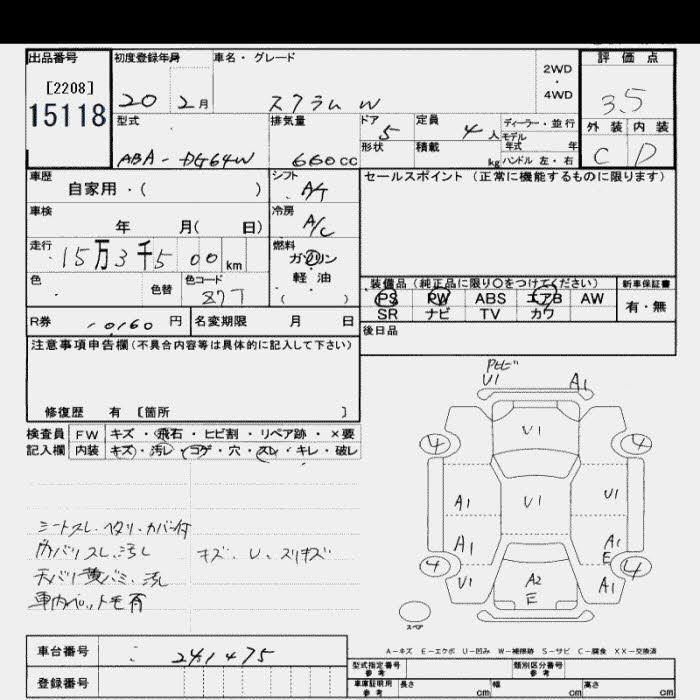 出品番号 初度登録年月 車名・グレード 評価点
[2208]
15118
20 2月 スクラム W 2WD ・ 4WD 3.5
型式 排気量 ドア 5 定員 4人 ディーラー・並行 外装 内装
モデル年式 年
ABA-DG64W 660cc 形状 積載 kg ハンドル 左・右 C D
車歴 シフト セールスポイント (正常に機能するものに限ります)
自家用・( ) A/T
車検 冷房
年 月( 日) A/C
走行 燃料
15万3千500km ガソリン
軽油
( )
色 色替 色コード
Z7T
装備品 (純正品に限り○をつけてください) 新車保証書
PS PW ABS エアB AW 有・無
SR ナビ TV カワ
R券 10,160円 名変期限 月 日
後日品
注意事項申告欄(不具合内容等は具体的に記入して下さい)
修復歴 有 [箇所 ]
検査員 FW キズ・飛石・ヒビ割・リペア跡・×要
記入欄 内装 キズ・汚レ・コゲ・穴・スレ・キレ・破レ
シートスレ・ヘタリ・カバー付
内バリスレ、汚レ キズ・U・スリキズ
天バリ黄バミ・汚レ
車内ペット毛有
U1 A1
4 U1 4
A1 U1 U1
A1 A1
E
4 4
U1 A2 A1
E
スペア
A-キズ E-エクボ U-凹み W-補修跡 S-サビ C-腐食 XX-交換済
車台番号 241475
登録番号
型式指定番号 参考 類別区分番号 参考
車庫証明用 参考 長さ cm 幅 cm 高さ cm